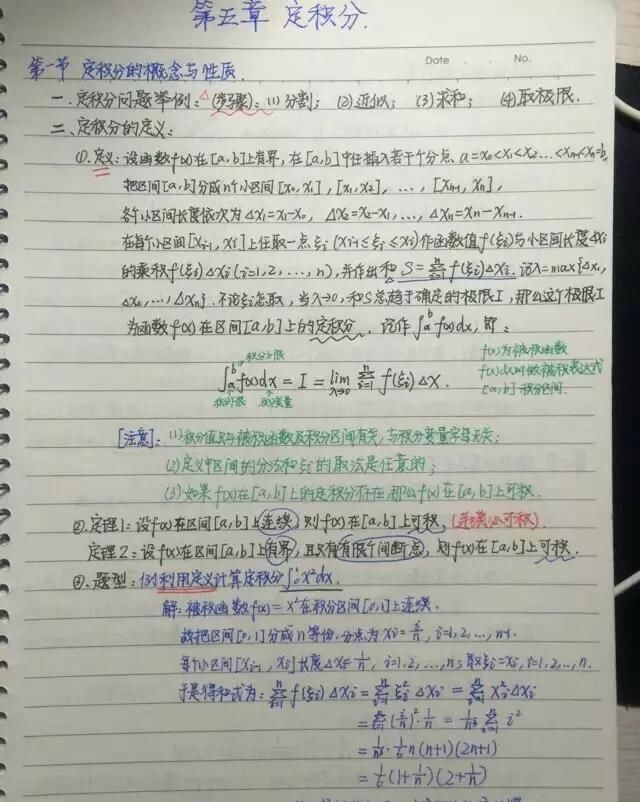 第五章 定积分.
Date . . No.
第一节 定积分的概念与性质.
一.定积分问题举例:△(步骤):(1)分割; (2)近似; (3)求和; (4)取极限.
二.定积分的定义:
①.定义:设函数f(x)在[a,b]上有界,在[a,b]中任插入若干个分点 a=x₀<x₁<x₂...<xₙ₋₁<xₙ=b,
把区间[a,b]分成n个小区间[x₀,x₁],[x₁,x₂],...,[xₙ₋₁,xₙ],
各个小区间长度依次为Δx₁=x₁-x₀, Δx₂=x₂-x₁,..., Δxₙ=xₙ-xₙ₋₁.
在每个小区间[xᵢ₋₁,xᵢ]上任取一点ξᵢ(xᵢ₋₁≤ξᵢ≤xᵢ)作函数值f(ξᵢ)与小区间长度Δxᵢ
的乘积f(ξᵢ)Δxᵢ(i=1,2,...,n),并作出和 S=∑ᵢ₌₁ⁿf(ξᵢ)Δxᵢ.记λ=max{Δx₁,
Δx₂,...,Δxₙ}.不论ξᵢ怎取,当λ→0,和S总趋于确定的极限I,那么这个极限I
为函数f(x)在区间[a,b]上的定积分,记作∫ₐᵇf(x)dx,即:
积分上限
∫ₐᵇf(x)dx = I = lim λ→0 ∑ᵢ₌₁ⁿ f(ξᵢ)ΔX.
积分下限 积分变量
f(x)为被积函数
f(x)dx叫做被积表达式
[a,b]积分区间.
[注意]:(1)积分值只与被积函数及积分区间有关,与积分变量字母无关;
(2)定义中区间的分法和ξᵢ的取法是任意的;
(3)如果f(x)在[a,b]上的定积分存在,那么f(x)在[a,b]上可积.
②.定理1:设f(x)在区间[a,b]上连续,则f(x)在[a,b]上可积,(连续必可积).
定理2:设f(x)在区间[a,b]上有界,且只有有限个间断点,则f(x)在[a,b]上可积.
③.题型:例利用定义计算定积分∫₀¹x²dx.
解:被积函数f(x)=x²在积分区间[0,1]上连续.
故把区间[0,1]分成n等份,分点为xᵢ=i/n, i=1,2,...,n-1.
每个小区间[xᵢ₋₁,xᵢ]长度Δxᵢ=1/n, i=1,2,...,n;取ξᵢ=xᵢ,i=1,2,...,n.
于是得和式为:∑ᵢ₌₁ⁿf(ξᵢ)Δxᵢ=∑ᵢ₌₁ⁿξᵢ²Δxᵢ=∑ᵢ₌₁ⁿxᵢ²Δxᵢ
=∑ᵢ₌₁ⁿ(i/n)²·1/n = 1/n³∑ᵢ₌₁ⁿi²
=1/n³·1/6n(n+1)(2n+1)
=1/6(1+1/n)(2+1/n)